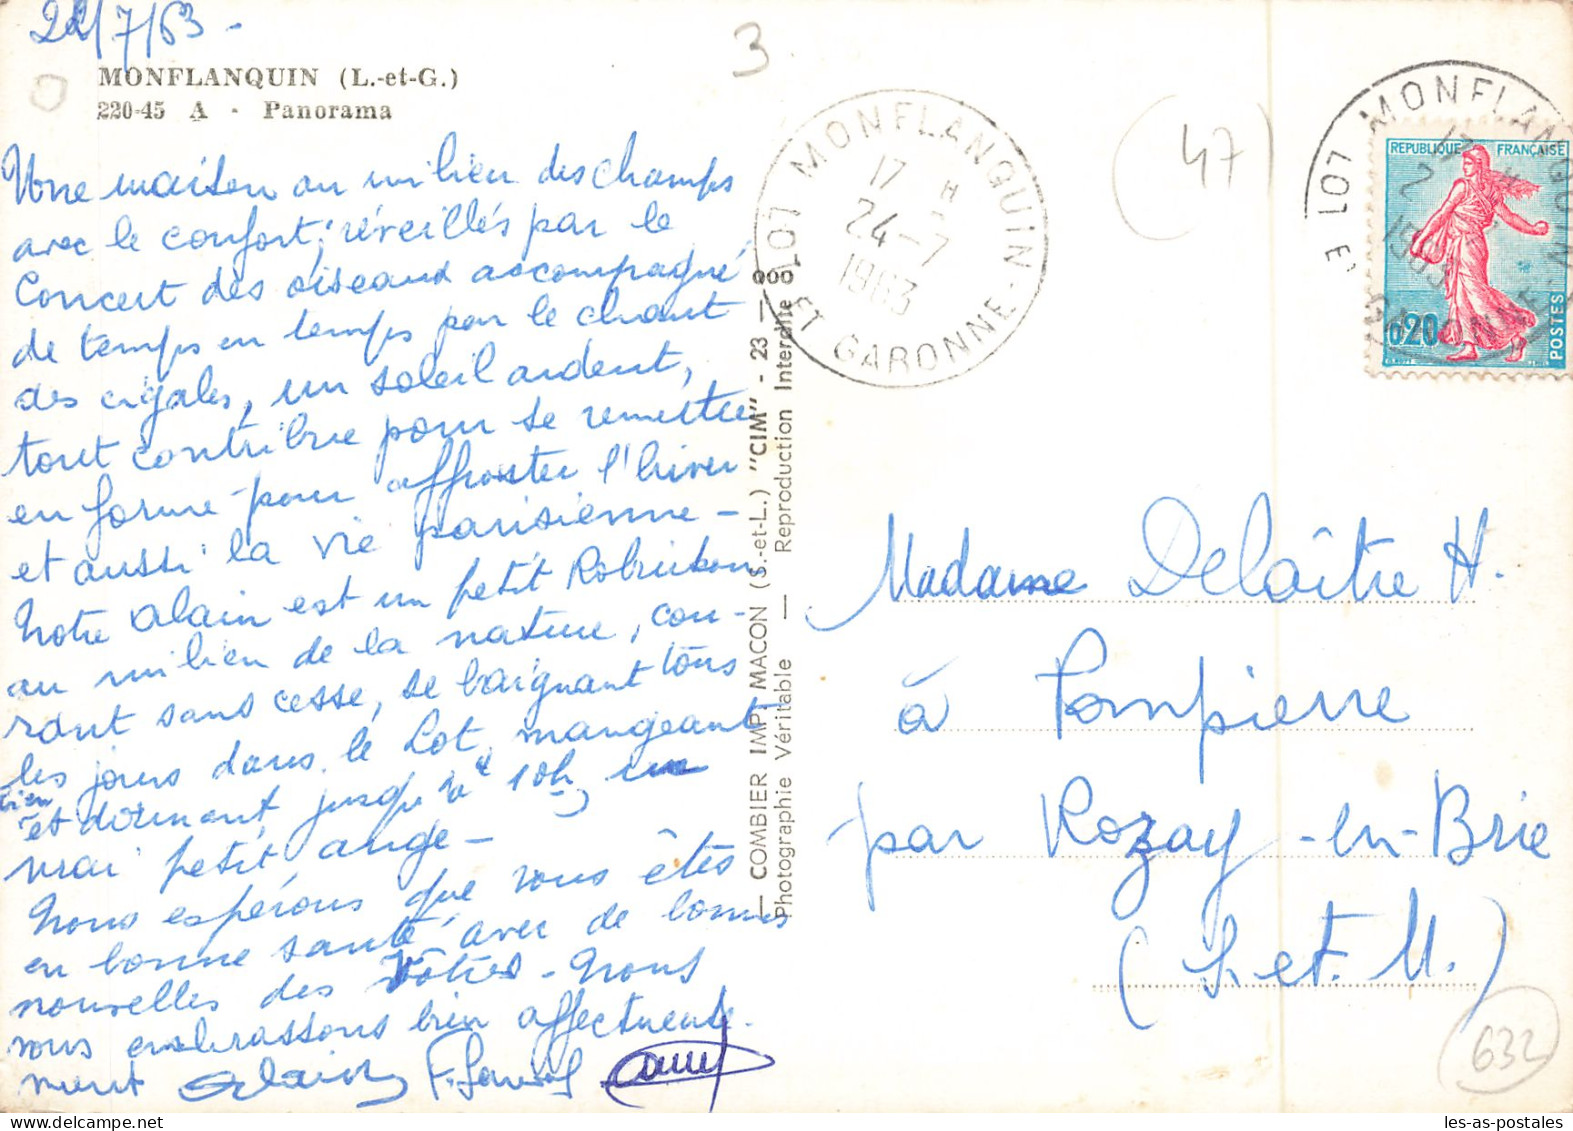 22/7/63 -
MONFLANQUIN (L.-et-G.)
220-45 A - Panorama
Une maison au milieu des champs
avec le confort, réveillés par le
Concert des oiseaux accompagné
de temps en temps par le chant
des cigales, un soleil ardent,
tout contribue pour se remettre
en forme pour affronter l'hiver
et aussi la vie parisienne -
Notre Alain est un petit Robinson
au milieu de la nature, cou-
rant sans cesse, se baignant tous
les jours dans le Lot, mangeant
bien
et dormant jusqu'à 10h, un
vrai petit ange -
Nous espérons que vous êtes
en bonne santé, avec de bonnes
nouvelles des vôtres - Nous
vous embrassons bien affectueuse-
ment Alain
COMBIER IMP. MACON (S.-et-L.) "CIM" - 23
Photographie Véritable — Reproduction Interdite
3
MONFLANQUIN
17 H
24-7
1963
LOT ET GARONNE
(47)
LOT MONFLANQUIN
REPUBLIQUE FRANÇAISE
0,20
POSTES
Madame Delaître H.
à Pompierre
par Rozay-en-Brie
(S. et. M.)
632
les-as-postales